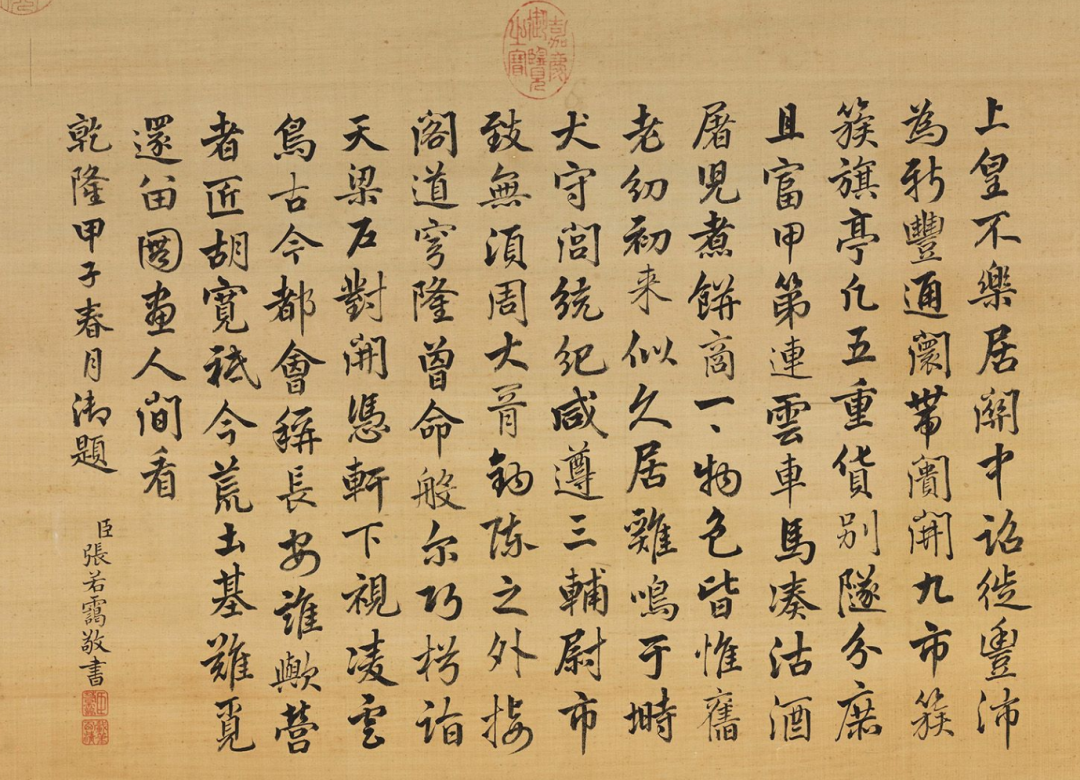 上皇不樂居關中詔徙豐沛
為新豐通闤帶闠開九市簇
簇旗亭凡五重貨別隧分廛
且富甲第連雲車馬湊沽酒
屠兒煮餅商一、物色皆惟舊
老幼初来似久居雞鳴于塒
犬守閭統紀咸遵三輔尉市
致無須周大胥鈎陳之外接
閣道穹隆曾命般尔巧枍詣
天梁石對開憑軒下視凌雲
鳥古今都會稱長安誰歟營
者匠胡寬祗今荒土基難覓
還留圖畫人間看
乾隆甲子春月御題
臣張若靄敬書
嘉慶御覽之寶